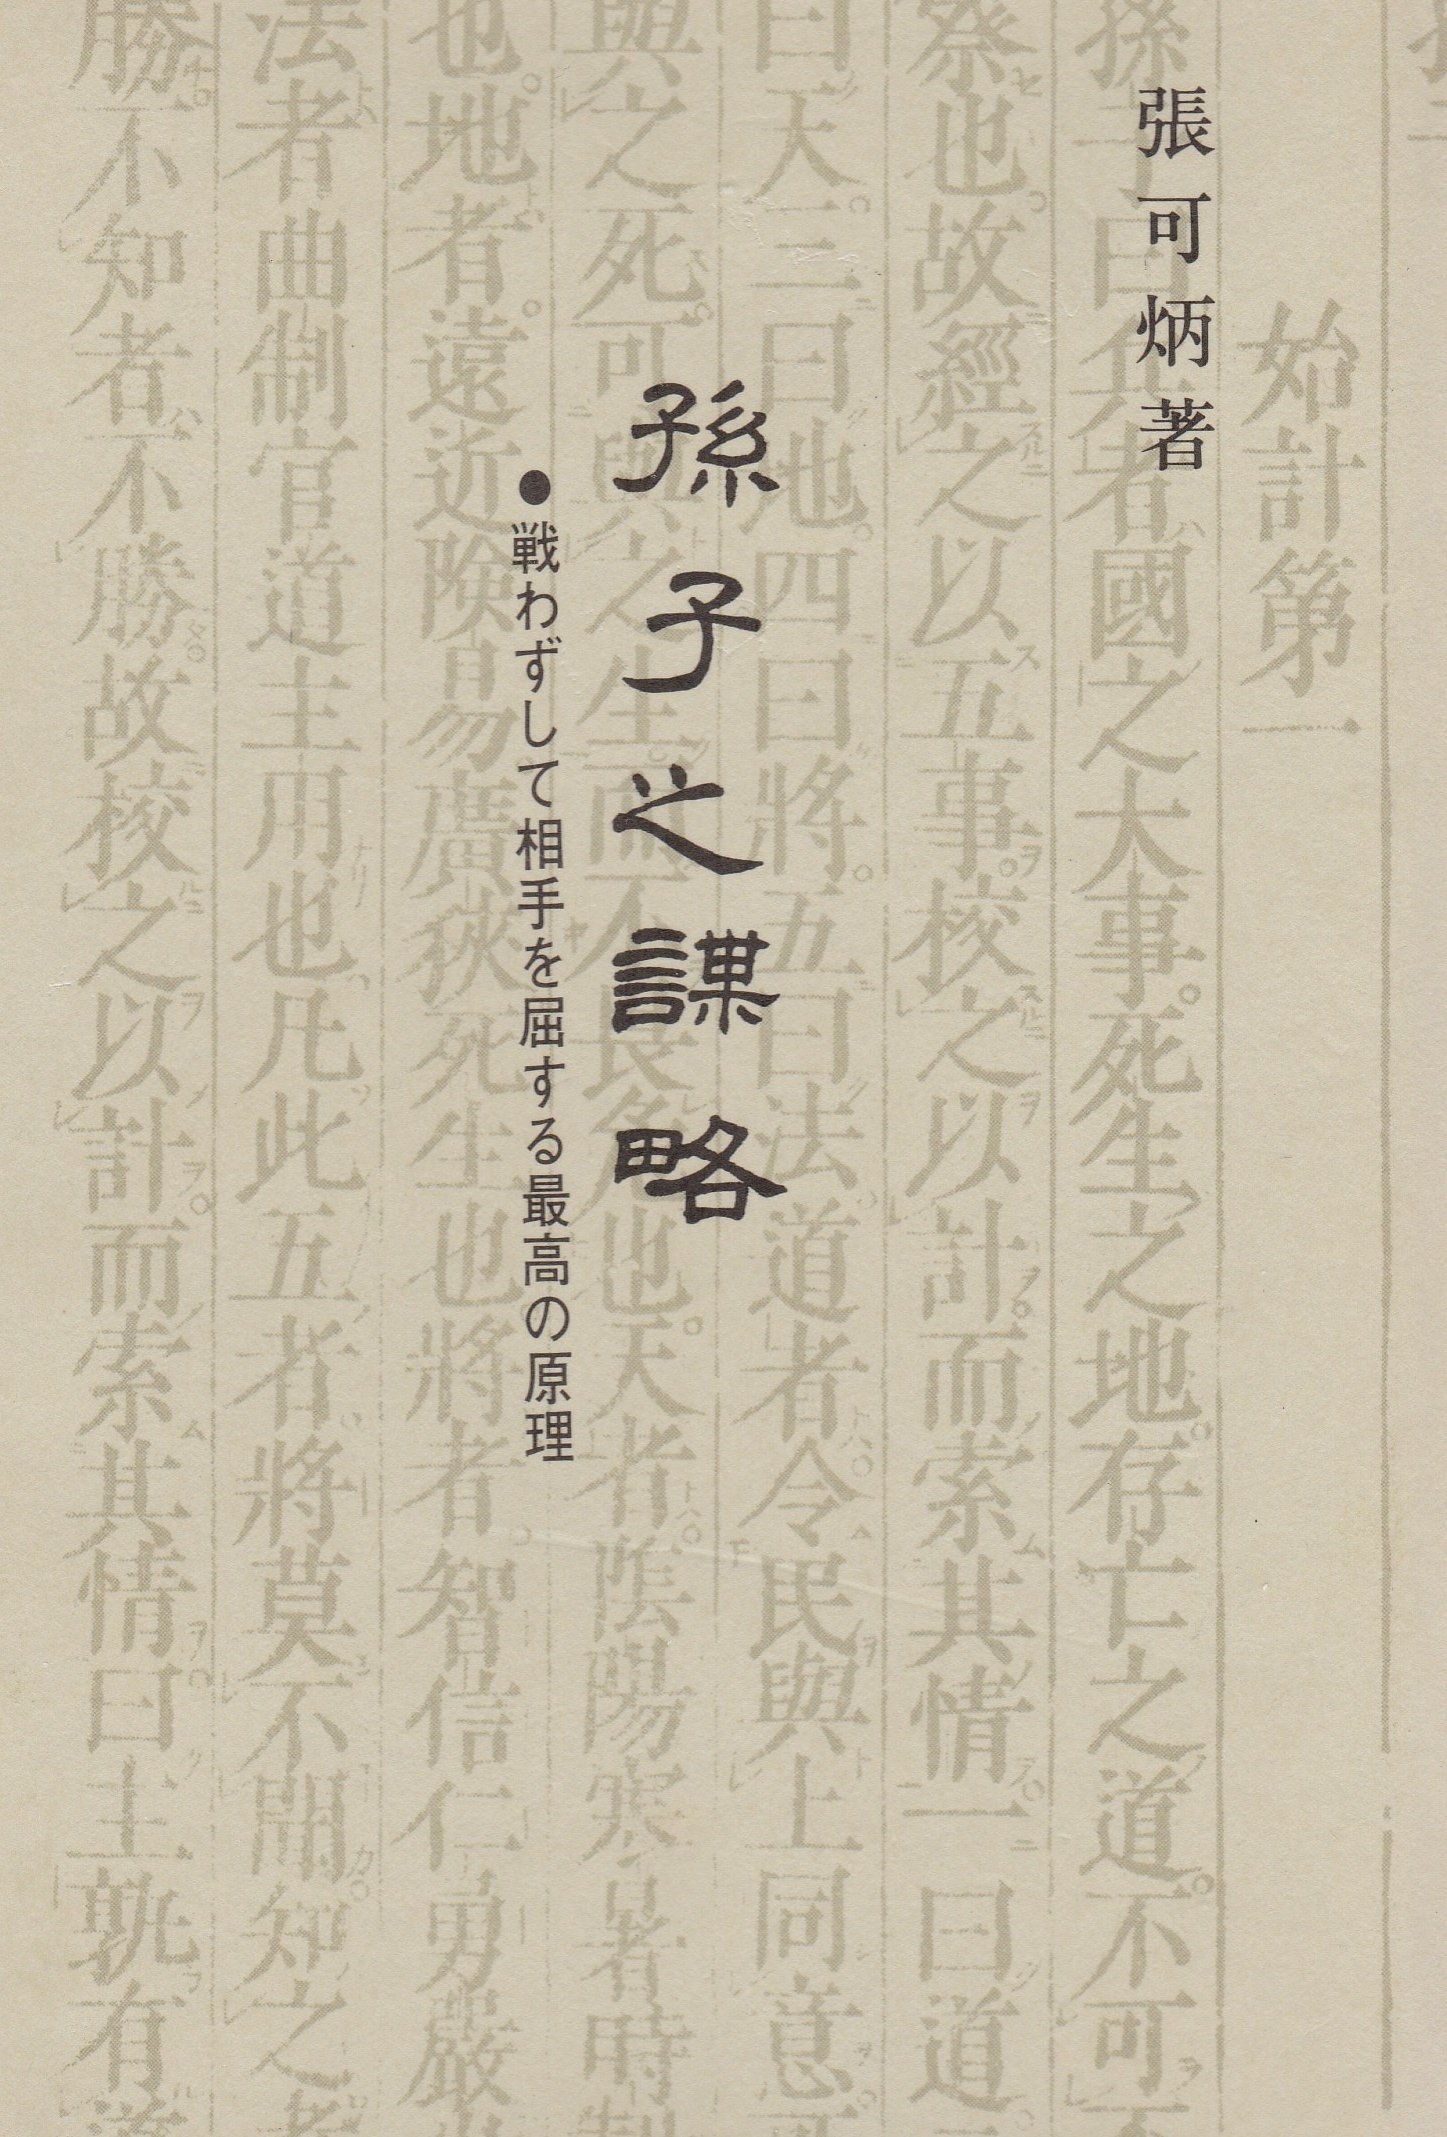 張可炳著
孫子之謀略
●戦わずして相手を屈する最高の原理
始計第一
孫子曰兵者國之大事。死生之地。存亡之道。不可不
察也。故經之以五事。校之以計。而索其情。一曰道二
曰天。三曰地。四曰將。五曰法道者。令民與上同意可
與之死。可與之生而不畏危也。天者。陰陽寒暑時制
也。地者。遠近険易廣狹死生也將者。智信仁勇嚴也
法者曲制官道主用也凡此五者。將莫不聞。知之者
勝。不知者不勝。故校之以計。而索其情。曰主孰有道